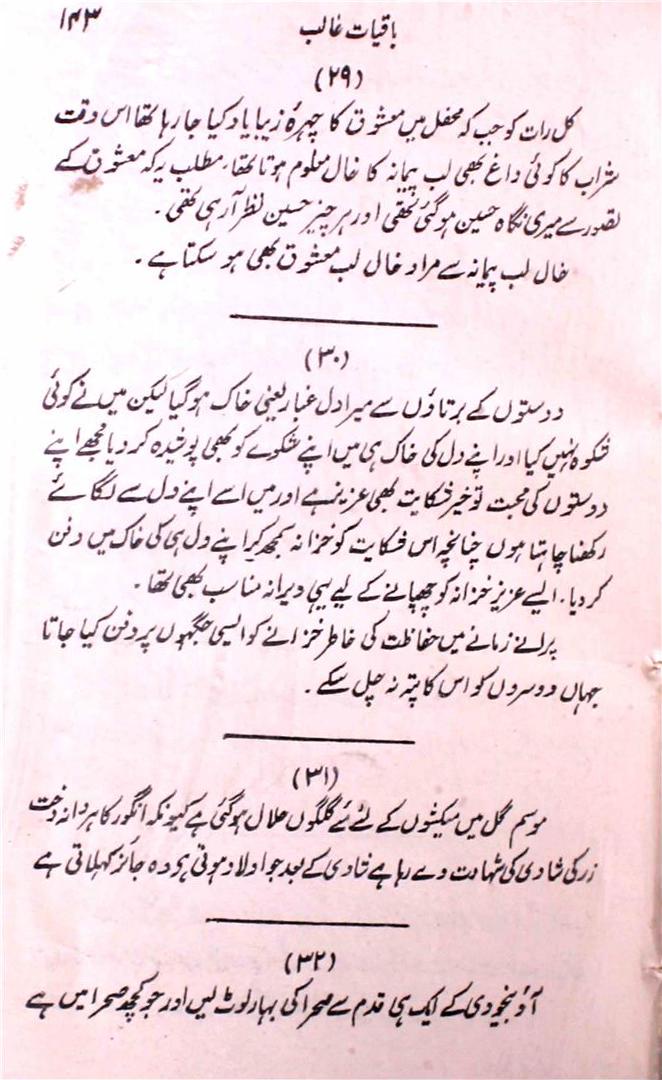 باقیات غالب ۱۴۳
(۲۹)
کل رات کو جب کہ محفل میں معشوق کا چہرۂ زیبا یاد کیا جا رہا تھا اس وقت
شراب کا کوئی داغ بھی لب پیمانہ کا خال معلوم ہوتا تھا، مطلب یہ کہ معشوق کے
تصور سے میری نگاہ حسین ہو گئی تھی اور ہر چیز حسین نظر آ رہی تھی۔
خال لب پیمانہ سے مراد خال لب معشوق بھی ہو سکتا ہے۔
(۳۰)
دوستوں کے برتاؤں سے میرا دل غبار یعنی خاک ہو گیا لیکن میں نے کوئی
شکوہ نہیں کیا اور اپنے دل کی خاک ہی میں اپنے شکوے کو بھی پوشیدہ کر دیا مجھے اپنے
دوستوں کی محبت تو خیر شکایت بھی عزیز ہے اور میں اسے اپنے دل سے لگائے
رکھنا چاہتا ہوں چنانچہ اس شکایت کو خزانہ سمجھ کر اپنے دل ہی کی خاک میں دفن
کر دیا۔ ایسے عزیز خزانہ کو چھپانے کے لیے یہی ویرانہ مناسب بھی تھا۔
پرانے زمانے میں حفاظت کی خاطر خزانے کو ایسی جگہوں پر دفن کیا جاتا
جہاں دوسروں کو اس کا پتہ نہ چل سکے۔
(۳۱)
موسم گل میں میکشوں کے لئے مے گلگوں حلال ہو گئی ہے کیونکہ انگور کا ہر دانہ دخت
زر کی شادی کی شہادت دے رہا ہے شادی کے بعد جو اولاد ہوتی ہے وہ جائز کہلاتی ہے
(۳۲)
آؤ بیخودی کے ایک ہی قدم سے صحرا کی بہار لوٹ لیں اور جو کچھ صحرا میں ہے